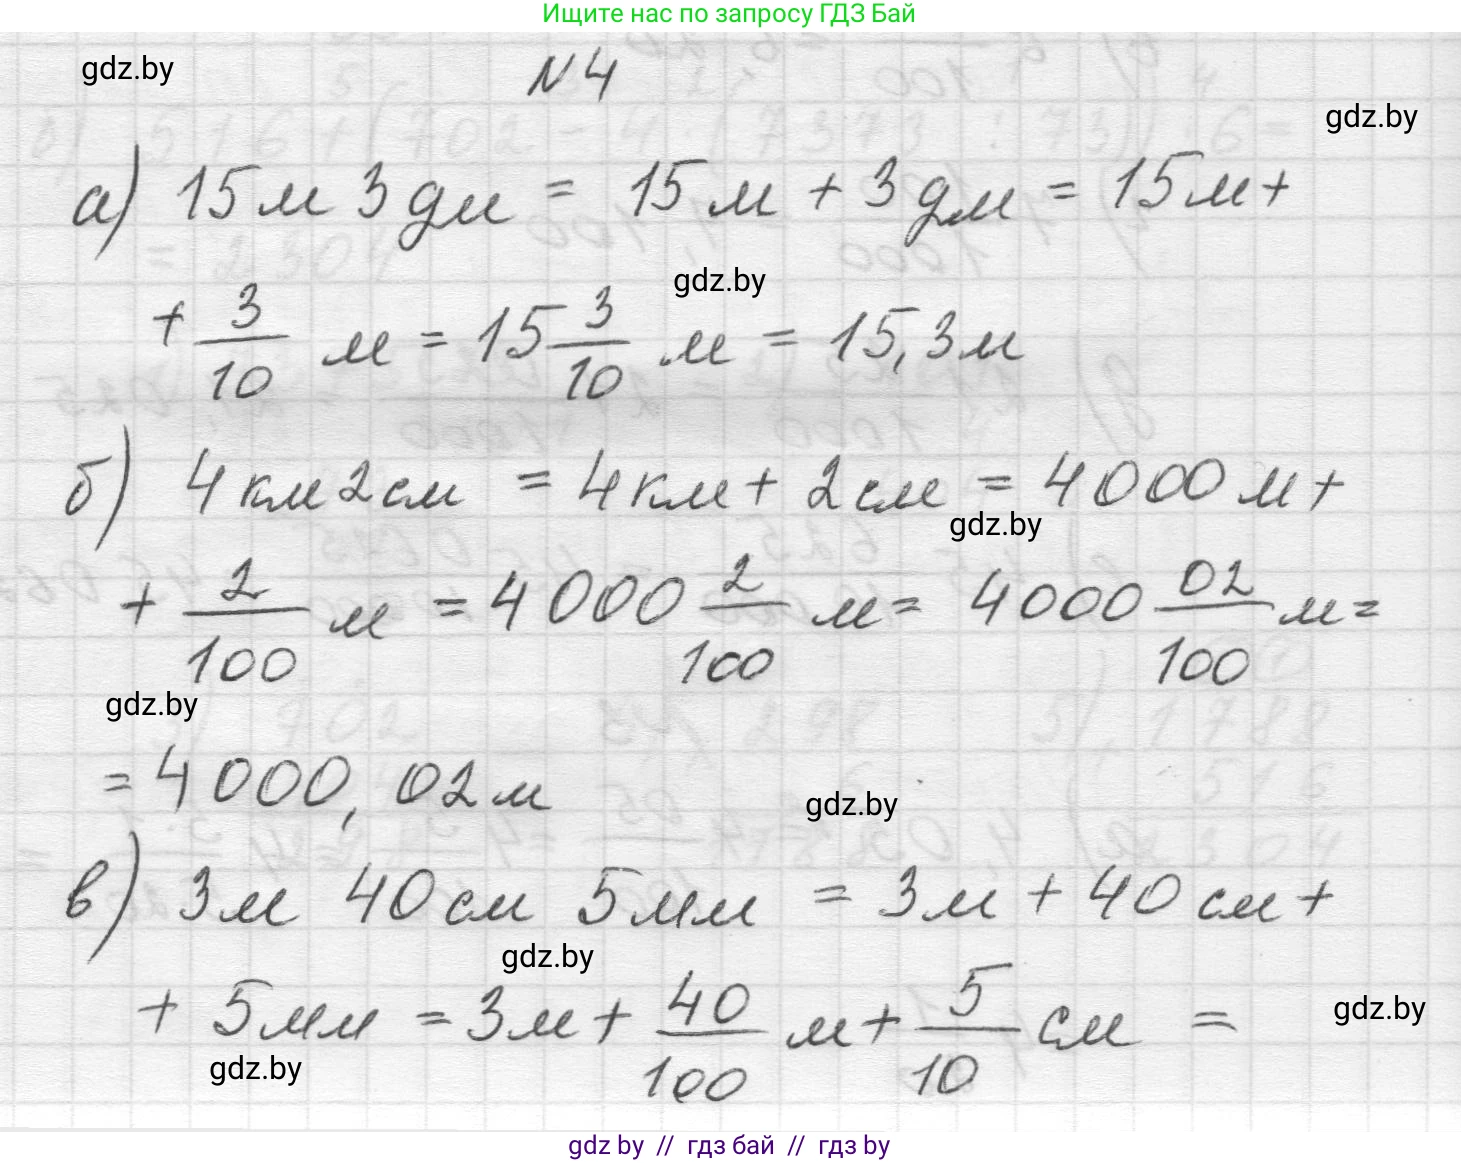 Ищите нас по запросу ГДЗ Бай
gdz.by
N4
gdz.by
а) 15 м 3 дм = 15 м + 3 дм = 15 м +
gdz.by
+ 3/10 м = 15 3/10 м = 15,3 м
б) 4 км 2 см = 4 км + 2 см = 4000 м +
gdz.by
+ 2/100 м = 4000 2/100 м = 4000 02/100 м =
gdz.by
= 4000,02 м
gdz.by
в) 3 м 40 см 5 мм = 3 м + 40 см +
gdz.by
+ 5 мм = 3 м + 40/100 м + 5/10 см =
gdz.by
gdz.by
gdz by // гдз бай // гдз by